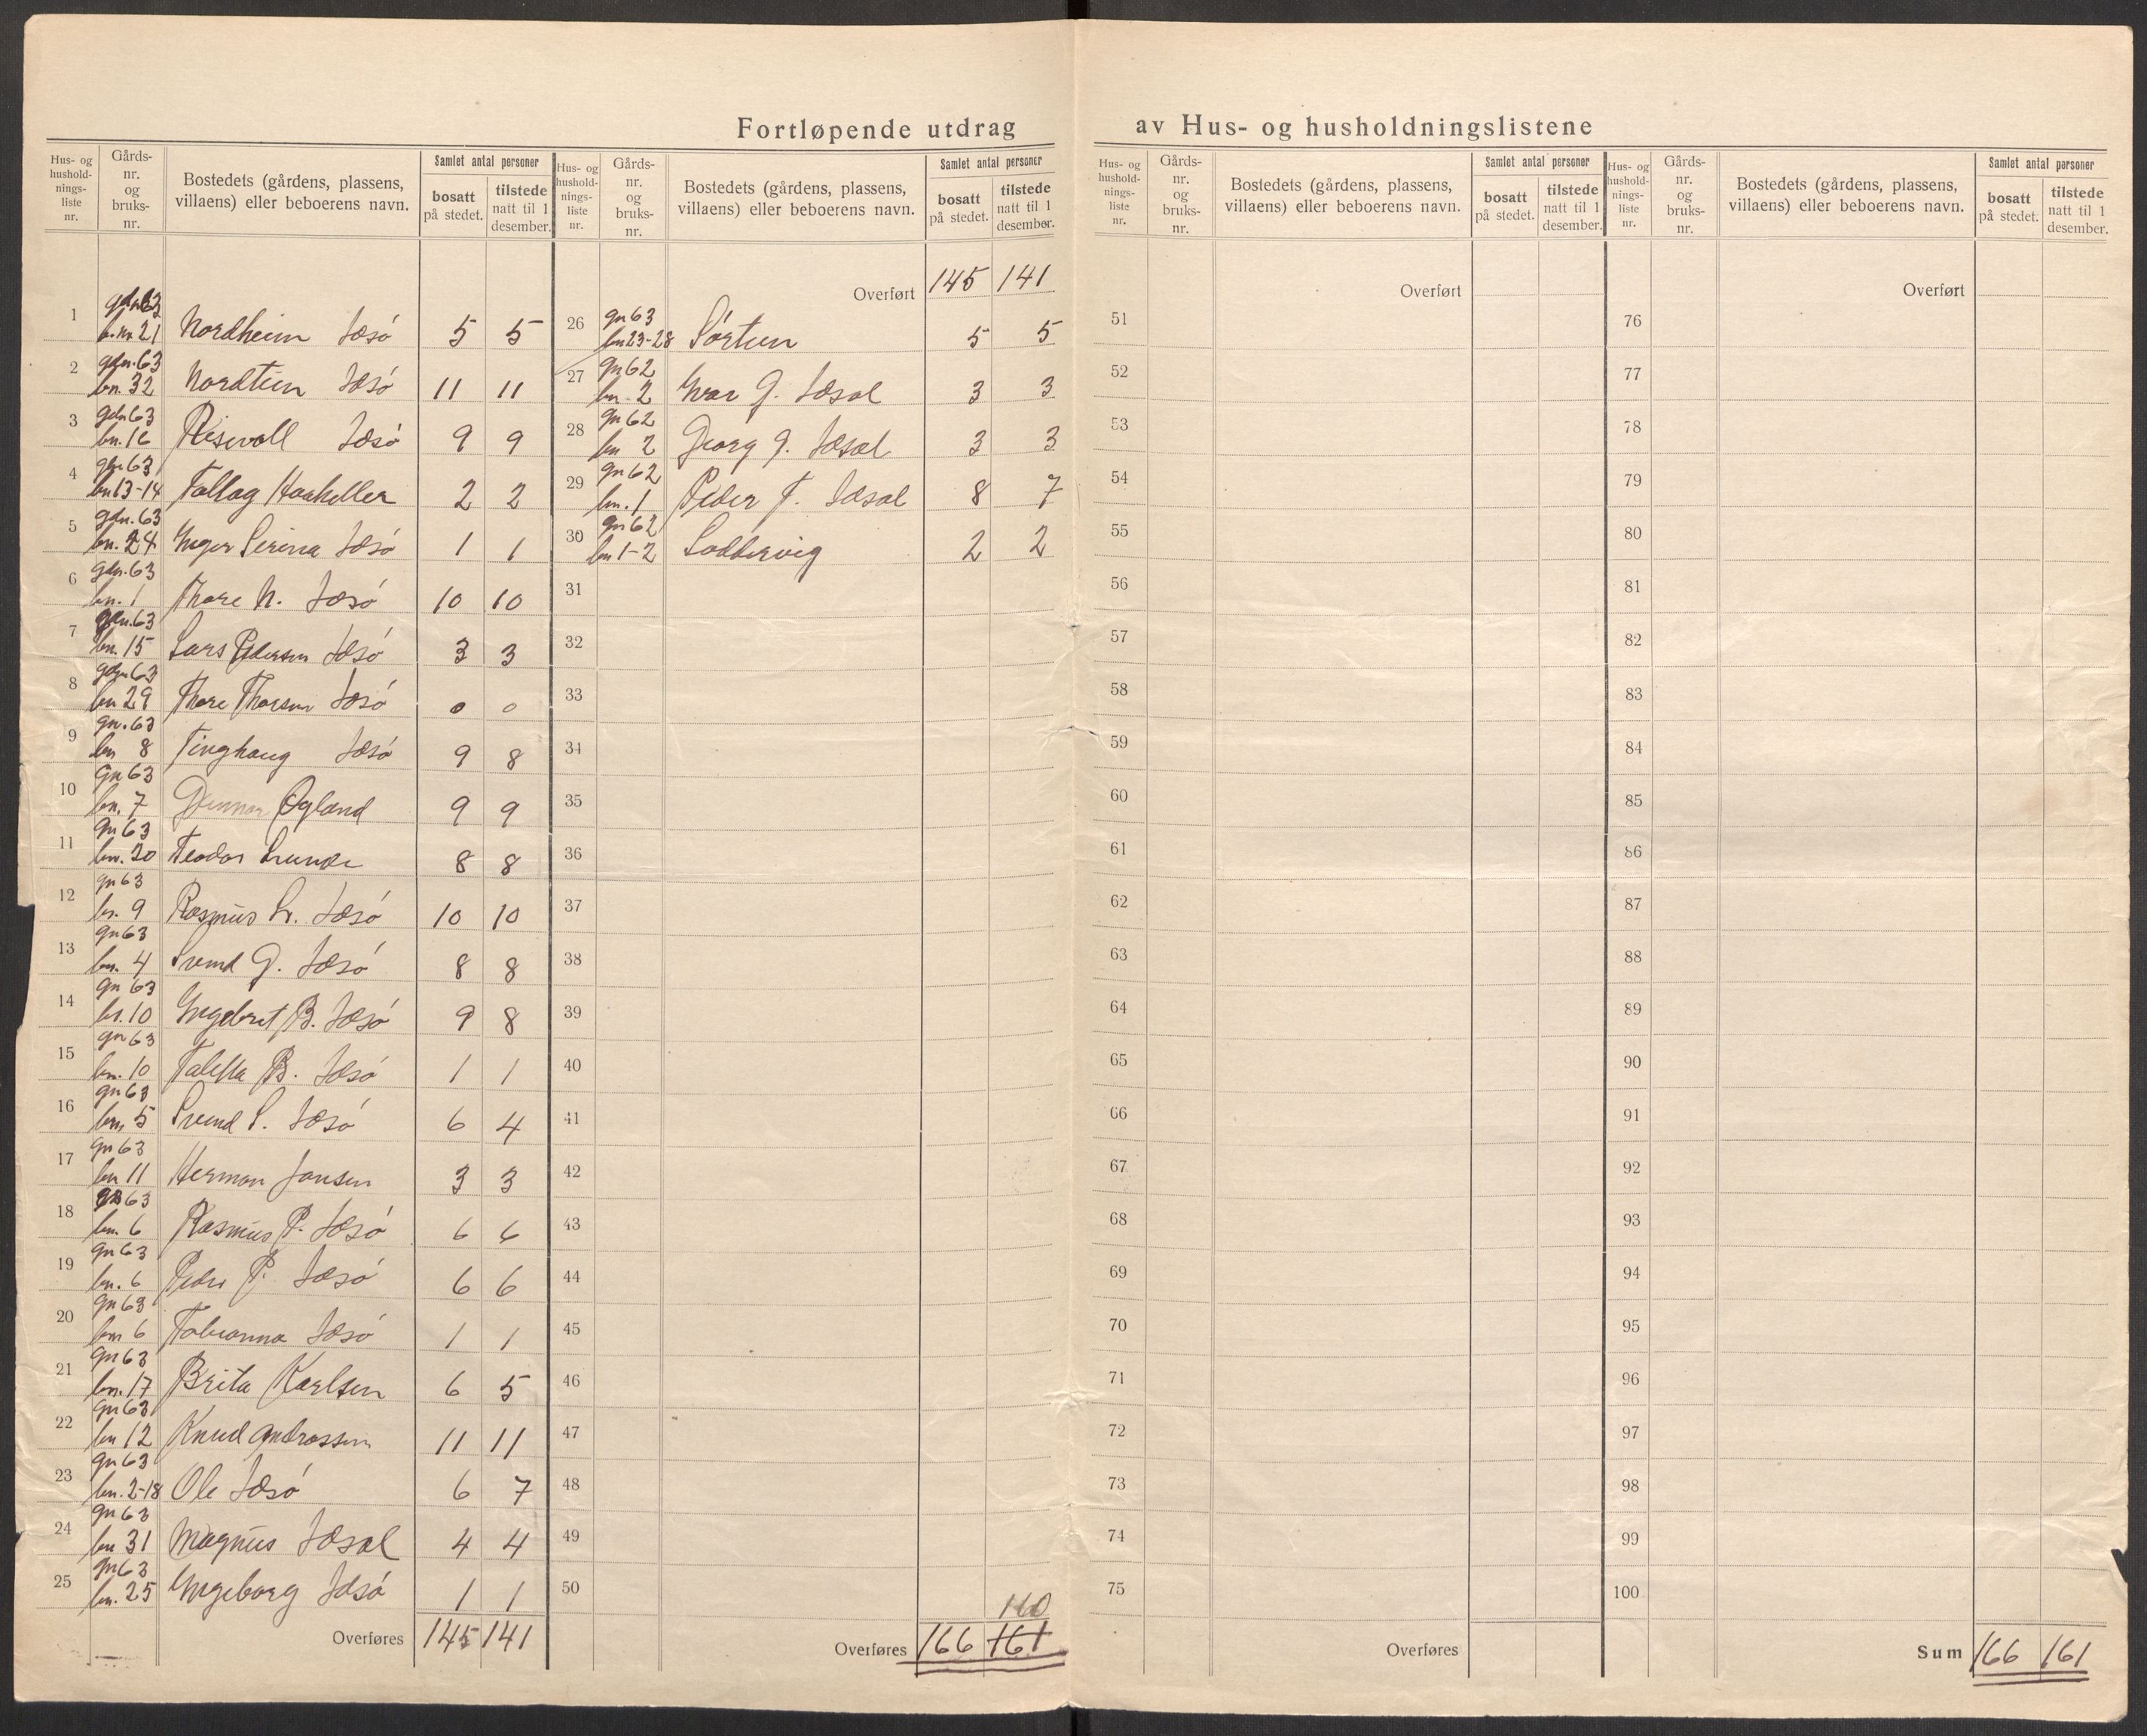 Fortløpende utdrag av Hus- og husholdningslistene
Hus- og husholdnings-liste nr. Gårds-nr. og bruks-nr. Bostedets (gårdens, plassens, villaens) eller beboerens navn. Samlet antal personer bosatt på stedet. tilstede natt til 1 desember.
1 gdn 63 b.nr. 21 Nordheim Jæsö 5 5
2 gdn. 63 bn. 32 Nordtun Jæsö 11 11
3 gdn 63 bn. 16 Risevoll Jæsö 9 9
4 gdn 63 bn 13-14 Tollag Haaheller 2 2
5 gdn. 63 bn. 24 Inger Serina Jæsö 1 1
6 gdn. 63 bn. 1 Thore N. Jæsö 10 10
7 gdn. 63 bn. 15 Lars Pedersen Jæsö 3 3
8 gdn 63 bn 29 Thore Thorsen Jæsö 0 0
9 gn. 63 bn 8 Tinghaug Jæsö 9 8
10 gn 63 bn. 7 Gunnar Øgland 9 9
11 gn 63 bn. 20 Teodor Lunde 8 8
12 gn 63 br. 9 Rasmus L. Jæsö 10 10
13 gn 63 bn. 4 Svend G. Jæsö 8 8
14 gn 63 br. 10 Ingebret B. Jæsö 9 8
15 gn 63 bn. 10 Taletta B. Jæsö 1 1
16 gn 63 bn. 5 Svend S. Jæsö 6 4
17 gn 63 bn 11 Herman Jansen 3 3
18 gn 63 bn. 6 Rasmus P. Jæsö 6 6
19 gn 63 bn. 6 Peder P. Jæsö 6 6
20 gn 63 bn 6 Tobianna Jæsö 1 1
21 gn 63 bn. 17 Brita Karlsen 6 5
22 gn 63 bn 12 Knud Andrassen 11 11
23 gn 63 bn. 2-18 Ole Jæsö 6 7
24 gn 63 bn 31 Magnus Jæsøl 4 4
25 gn 63 bn. 25 Ingeborg Jæsö 1 1
Overføres 145 141
Hus- og hushold-nings-liste nr. Gårds-nr. og bruks-nr. Bostedets (gårdens, plassens, villaens) eller beboerens navn. Samlet antal personer bosatt på stedet. tilstede natt til 1 desember.
Overført 145 141
26 gn 63 bn 23-28 Sörtun 5 5
27 gn 62 bn. 2 Ivar G. Jæsøl 3 3
28 gn 62 bn 2 Georg G. Jæsøl 3 3
29 gn 62 bn. 1 Peder T. Jæsøl 8 7
30 gn 62 bn 1-2 Soddervig 2 2
31
32
33
34
35
36
37
38
39
40
41
42
43
44
45
46
47
48
49
50
160
Overføres 166 161
Hus- og hushold-nings-liste nr. Gårds-nr. og bruks-nr. Bostedets (gårdens, plassens, villaens) eller beboerens navn. Samlet antal personer bosatt på stedet. tilstede natt til 1 desember.
Overført
51
52
53
54
55
56
57
58
59
60
61
62
63
64
65
66
67
68
69
70
71
72
73
74
75
Overføres
Hus- og hushold-nings-liste nr. Gårds-nr. og bruks-nr. Bostedets (gårdens, plassens, villaens) eller beboerens navn. Samlet antal personer bosatt på stedet. tilstede natt til 1 desember.
Overført
76
77
78
79
80
81
82
83
84
85
86
87
88
89
90
91
92
93
94
95
96
97
98
99
100
Sum 166 161